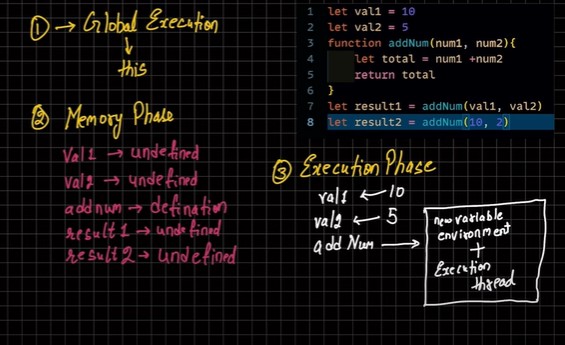 ① → Global Execution
↓
this
② Memory Phase
val1 → undefined
val2 → undefined
addnum → defination
result 1 → undefined
result 2 → undefined
1 let val1 = 10
2 let val2 = 5
3 function addNum(num1, num2){
4 let total = num1 +num2
5 return total
6 }
7 let result1 = addNum(val1, val2)
8 let result2 = addNum(10, 2)
③ Execution Phase
val1 ← 10
val2 ← 5
add Num →
new variable
environment
+
Execution
thread